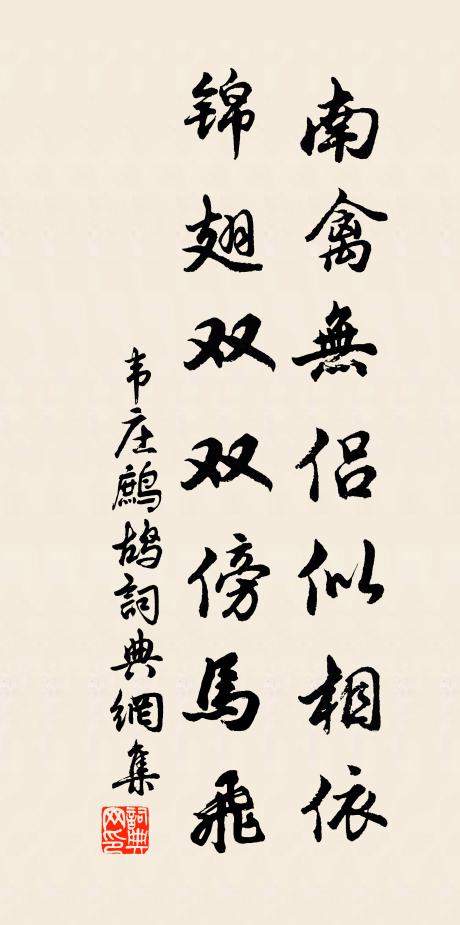 南禽無侣似相依
锦翅双双傍馬飛
韦庄鷓鴣詞典網集
詞典
网印